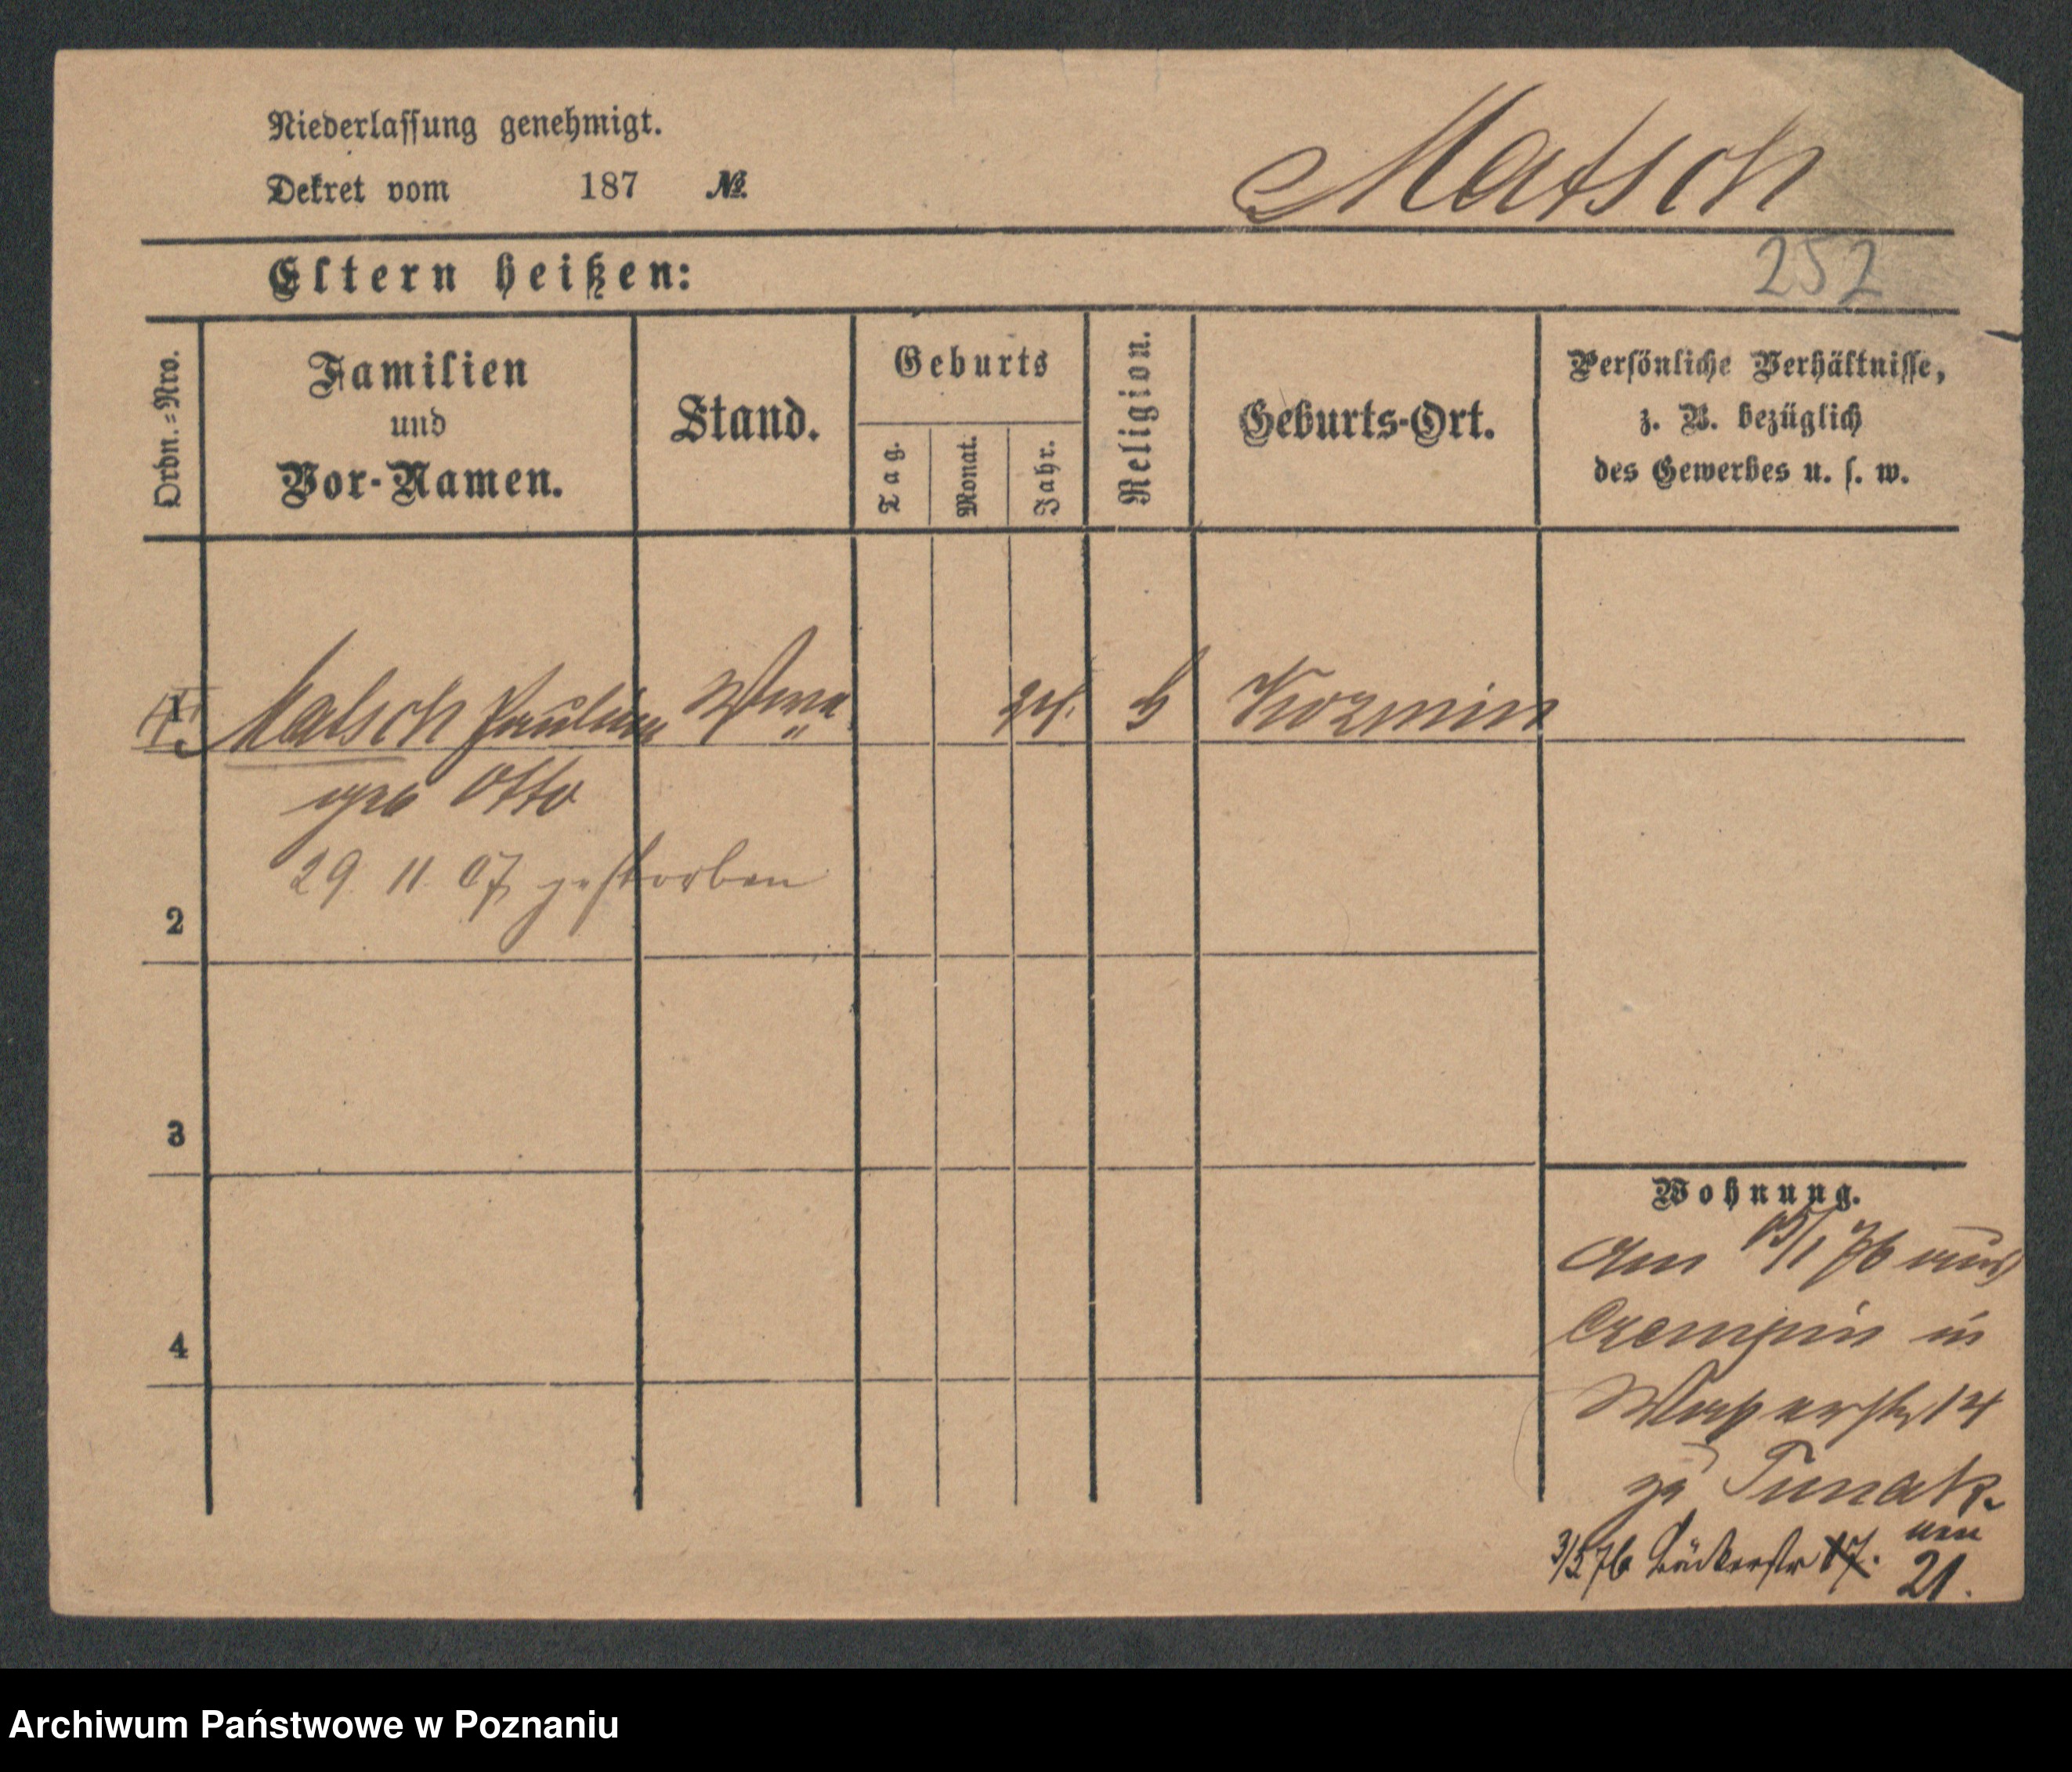 Niederlassung genehmigt.
Dekret vom 187 №.
Matsch
Eltern heißen:
252
Ordn.-Nro.
Familien
und
Vor-Namen.
Stand.
Geburts
Tag.
Monat.
Jahr.
Religion.
Geburts-Ort.
Persönliche Verhältnisse,
z. B. bezüglich
des Gewerbes u. s. w.
1 Matsch Pauline Wwe 24. Kozmin
geb Otto
29. 11. 07 gestorben
2
3
4
Wohnung.
Am /1 76 aus
Czempin in
14
zu
3/5 76 Bäckerstr 17. neu
21.
Archiwum Państwowe w Poznaniu